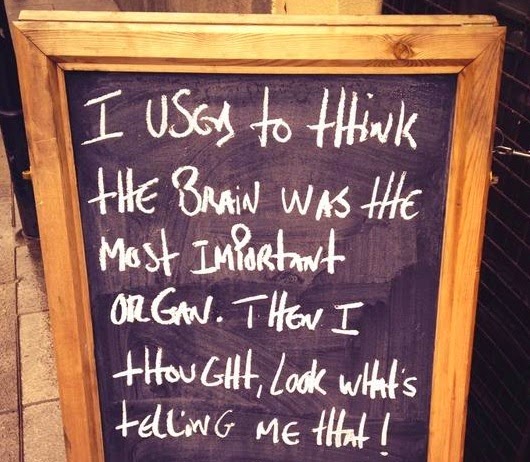 I USED to tHiNK
tHE BRAiN WAS tHE
MOSt IMPORtANt
ORGAN. THEN I
tHOUGHt, LOOK WHAt's
tELLiNG ME tHAt!